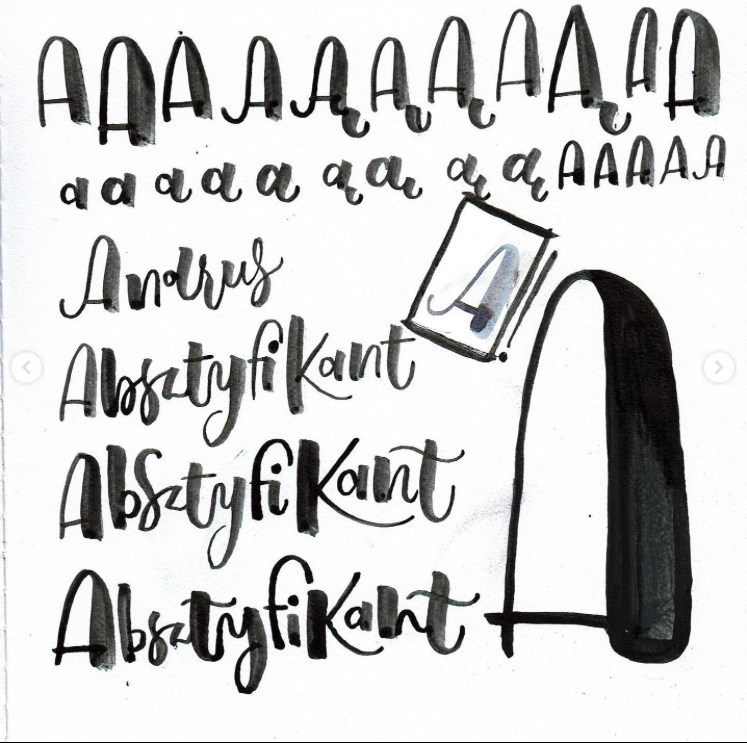 A A A A Ą Ą Ą A Ą A A
a a a a a ą ą ą ą A A A A A
Andrus
A
Absztyfikant
Absztyfikant
Absztyfikant
A